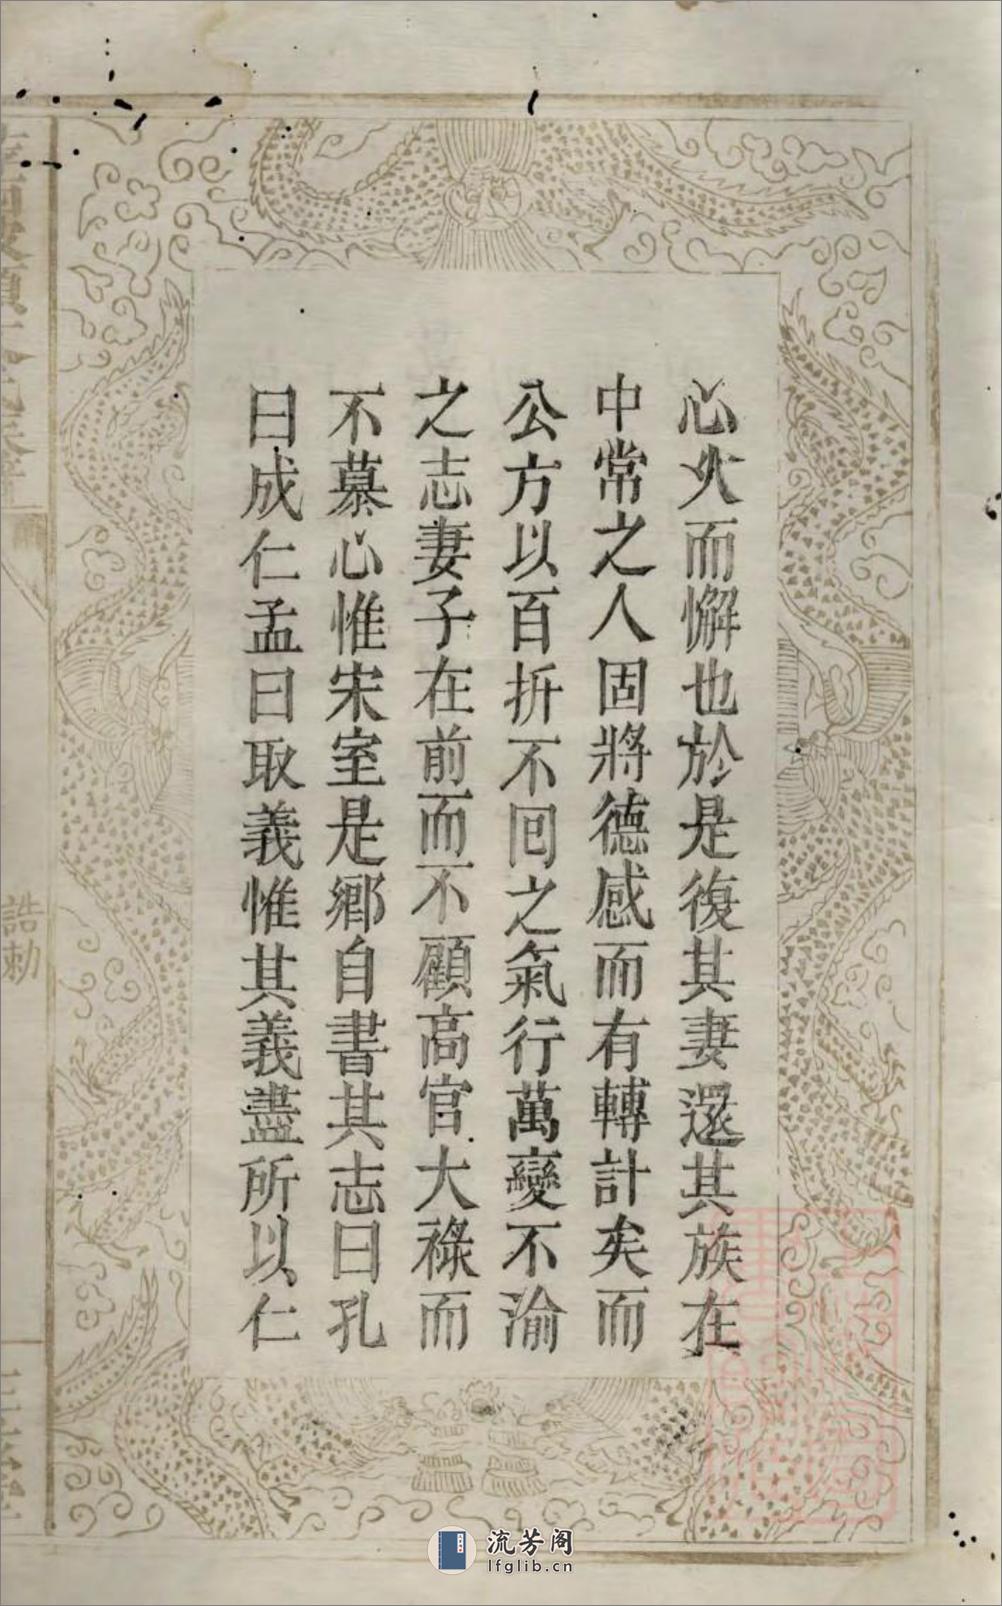 心火而懈也於是復其妻還其族在
中常之人固將德感而有轉計矣而
公方以百折不回之氣行萬變不渝
之志妻子在前而不顧高官大祿而
不慕心惟宋室是鄉自書其志曰孔
曰成仁孟曰取義惟其義盡所以仁
誥勅
流芳阁
lfglib.cn